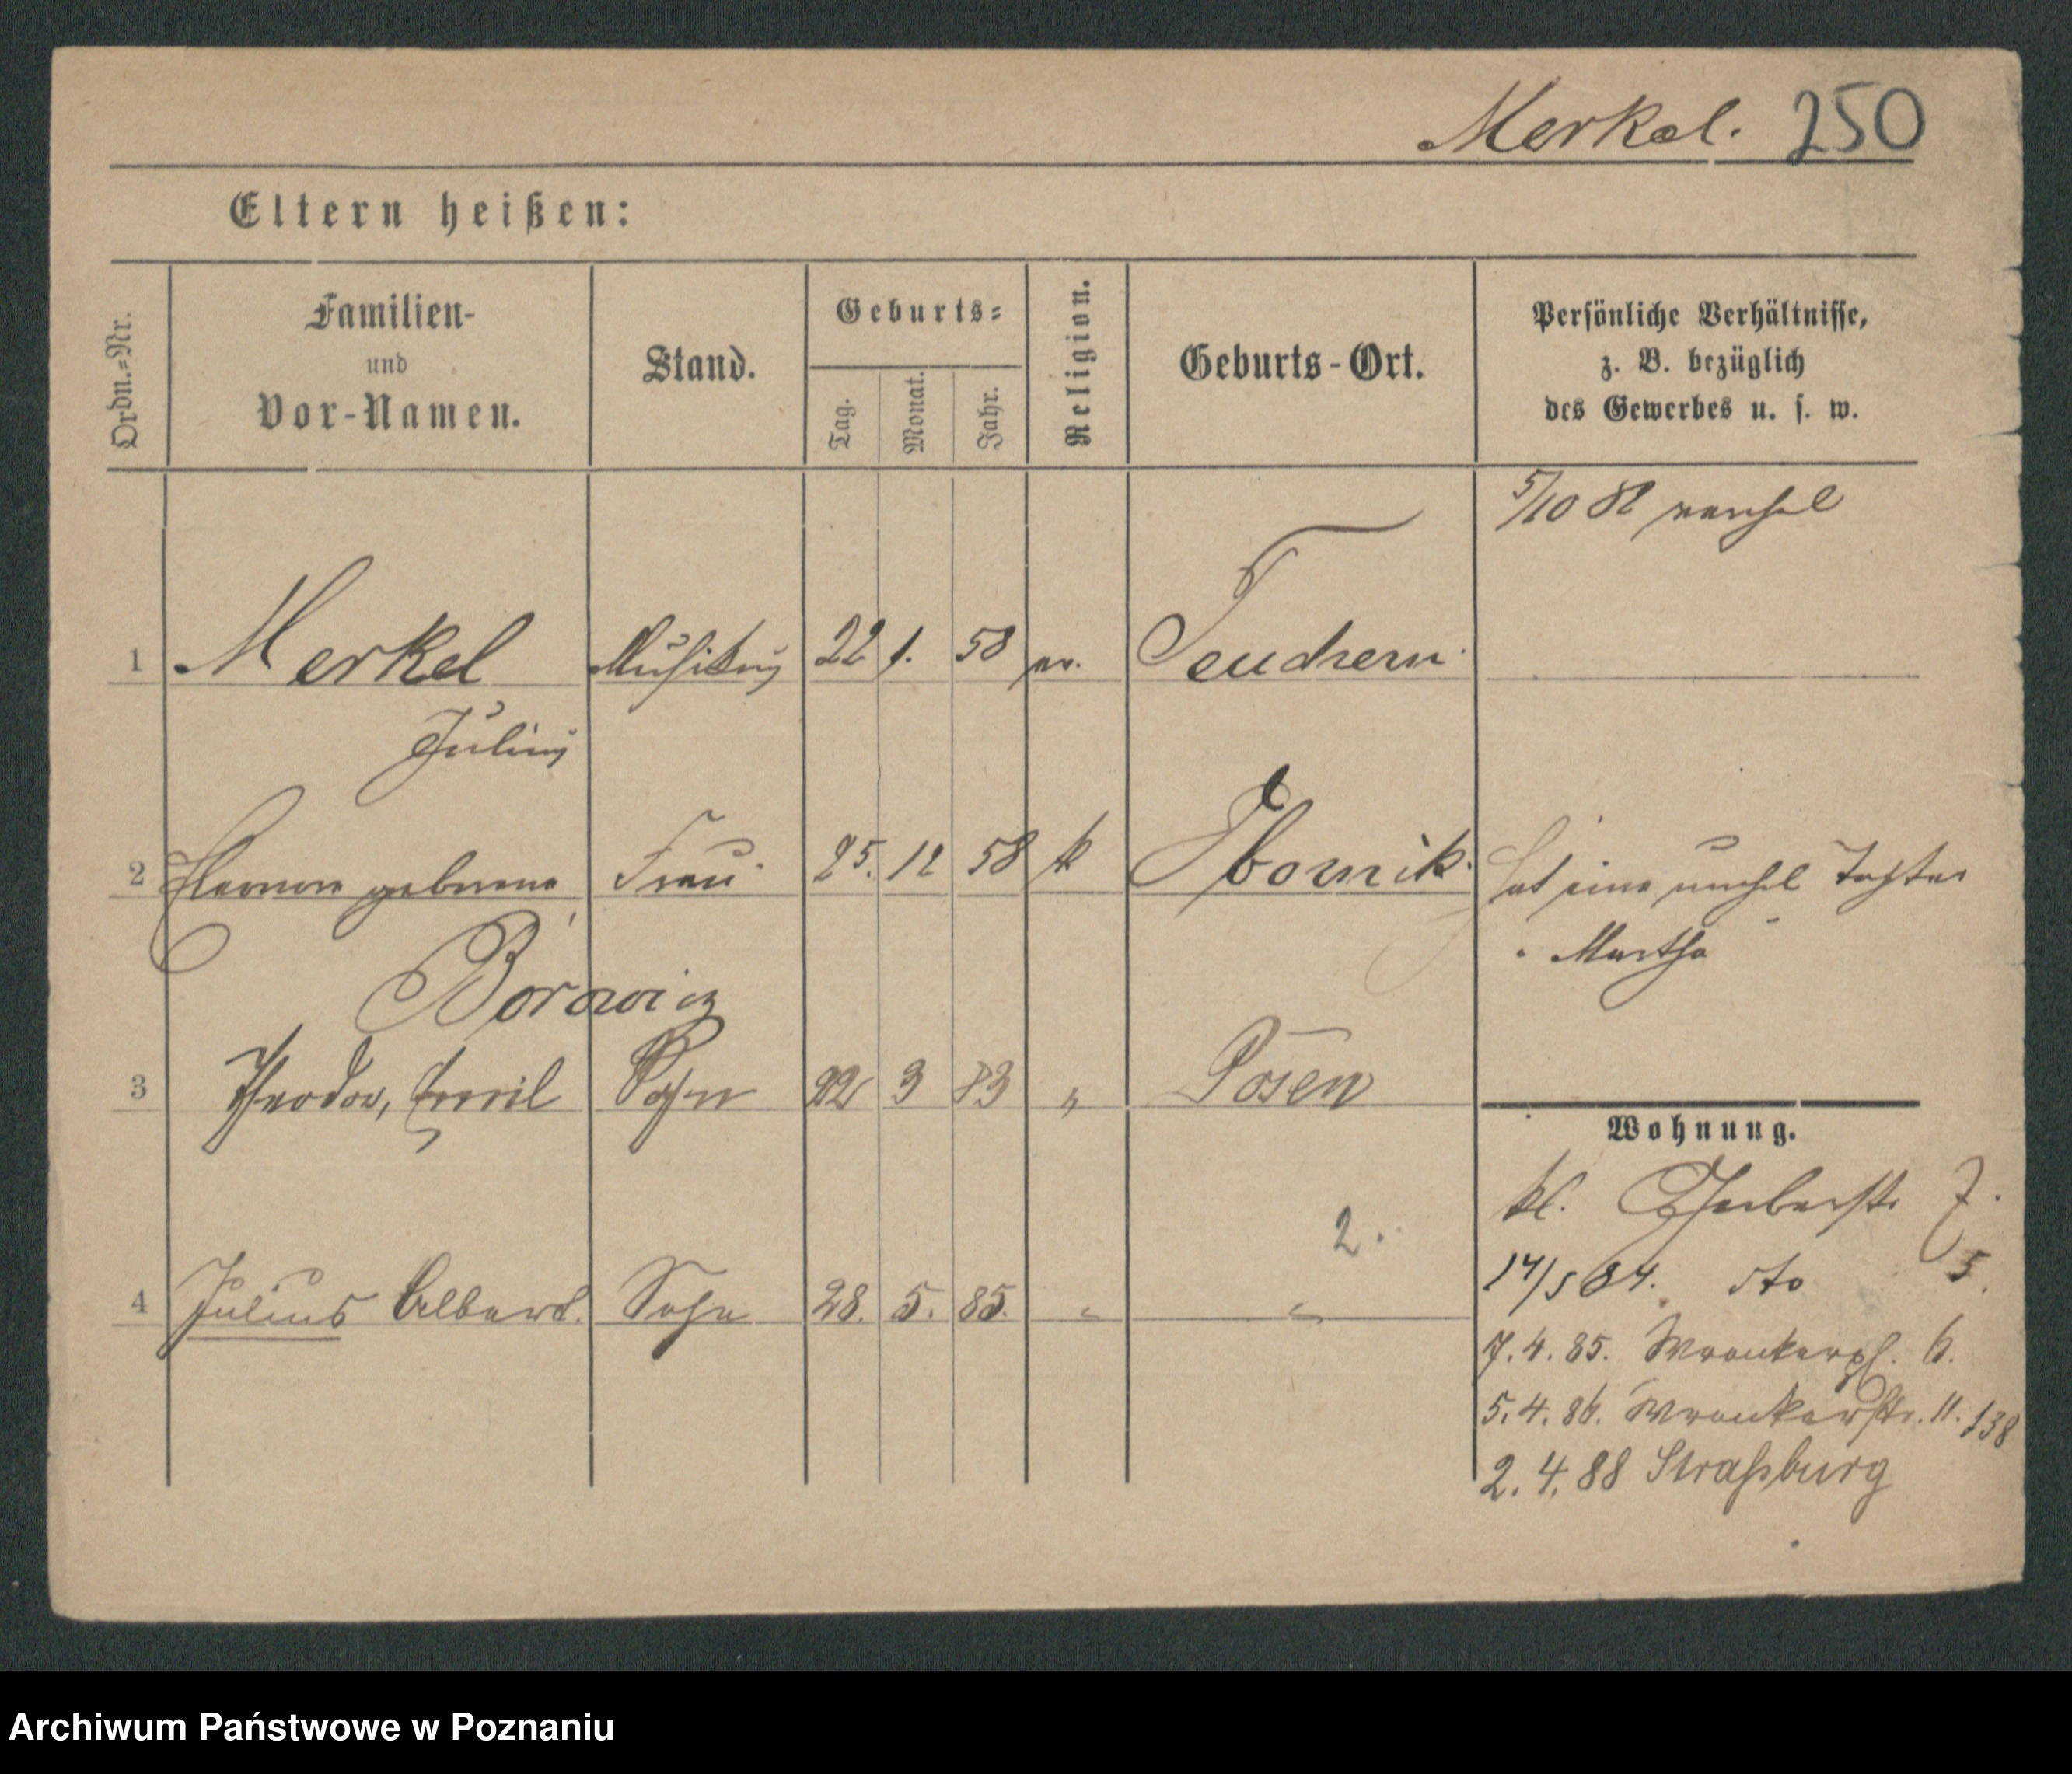 Merkel. 250
Eltern heißen:
Ordn.=Nr.
Familien-
und
Vor-Namen.
Stand.
Geburts=
Tag.
Monat.
Jahr.
Religion.
Geburts-Ort.
Persönliche Verhältnisse,
z. B. bezüglich
des Gewerbes u. s. w.
5/10 82 verehel
1 Merkel Musikus 22 1. 58 ev. Teuchern
Julius
2 geborene Frau 25. 12 58 k Obornik hat eine unehel Tochter
Martha
Borowicz
3 Theodor, Emil Sohn 22 3 83 " Posen
Wohnung.
kl. Gerberstr 7.
2.
17/5 84. dto 5.
4 Julius Albert. Sohn 28. 5. 85. " "
7.4.85. Wronkerpl. 6.
5.4.86. Wronkerstr. 11. 138
2.4.88 Straßburg
Archiwum Państwowe w Poznaniu